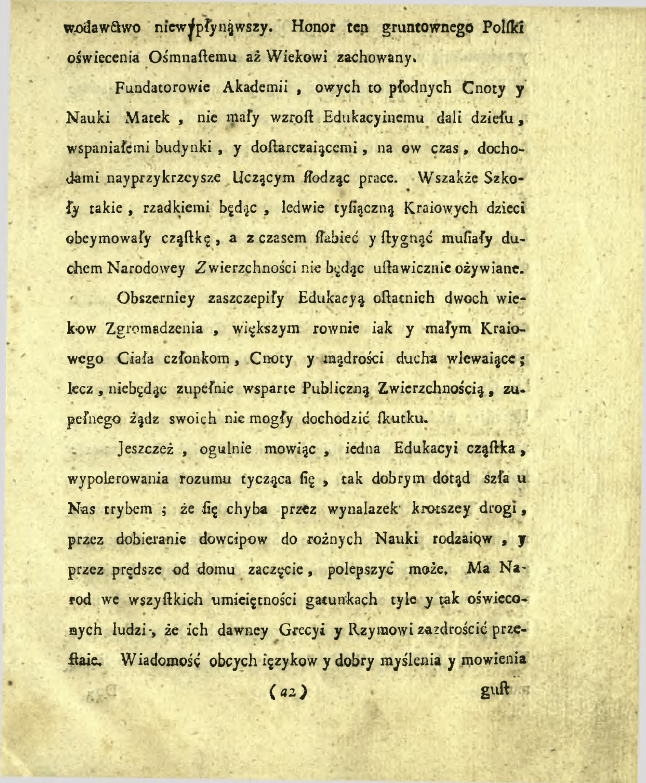 wodawctwo niewſpłynąwszy. Honor ten gruntownego Polſki
oświecenia Ośmnaſtemu aż Wiekowi zachowany.
Fundatorowie Akademii , owych to płodnych Cnoty y
Nauki Matek , nie mały wzroſt Edukacyinemu dali dziełu ,
wspaniałemi budynki , y doſtarczaiącemi , na ow czas , docho-
dami nayprzykrzeysze Uczącym ſłodząc prace. Wszakże Szko-
ły takie , rzadkiemi będąc , ledwie tyſiączną Kraiowych dzieci
obeymowały cząſtkę , a z czasem ſłabieć y ſtygnąć muſiały du-
chem Narodowey Zwierzchności nie będąc uſtawicznie ożywiane.
Obszerniey zaszczepiły Edukacyą oſtatnich dwoch wie-
kow Zgromadzenia , większym rownie iak y małym Kraio-
wego Ciała członkom , Cnoty y mądrości ducha wlewaiące ;
lecz , niebędąc zupełnie wsparte Publiczną Zwierzchnością , zu-
pełnego żądz swoich nie mogły dochodzić ſkutku.
Jeszczeż , ogulnie mowiąc , iedna Edukacyi cząſtka ,
wypolerowania rozumu tycząca ſię , tak dobrym dotąd szła u
Nas trybem ; że ſię chyba przez wynalazek krotszey drogi ,
przez dobieranie dowcipow do rożnych Nauki rodzaiow , y
przez prędsze od domu zaczęcie , polepszyć może. Ma Na-
rod we wszyſtkich umieiętności gatunkach tyle y tak oświeco-
nych ludzi , że ich dawney Grecyi y Rzymowi zazdrościć prze-
ſtaie. Wiadomość obcych ięzykow y dobry myślenia y mowienia
(a2) guſt